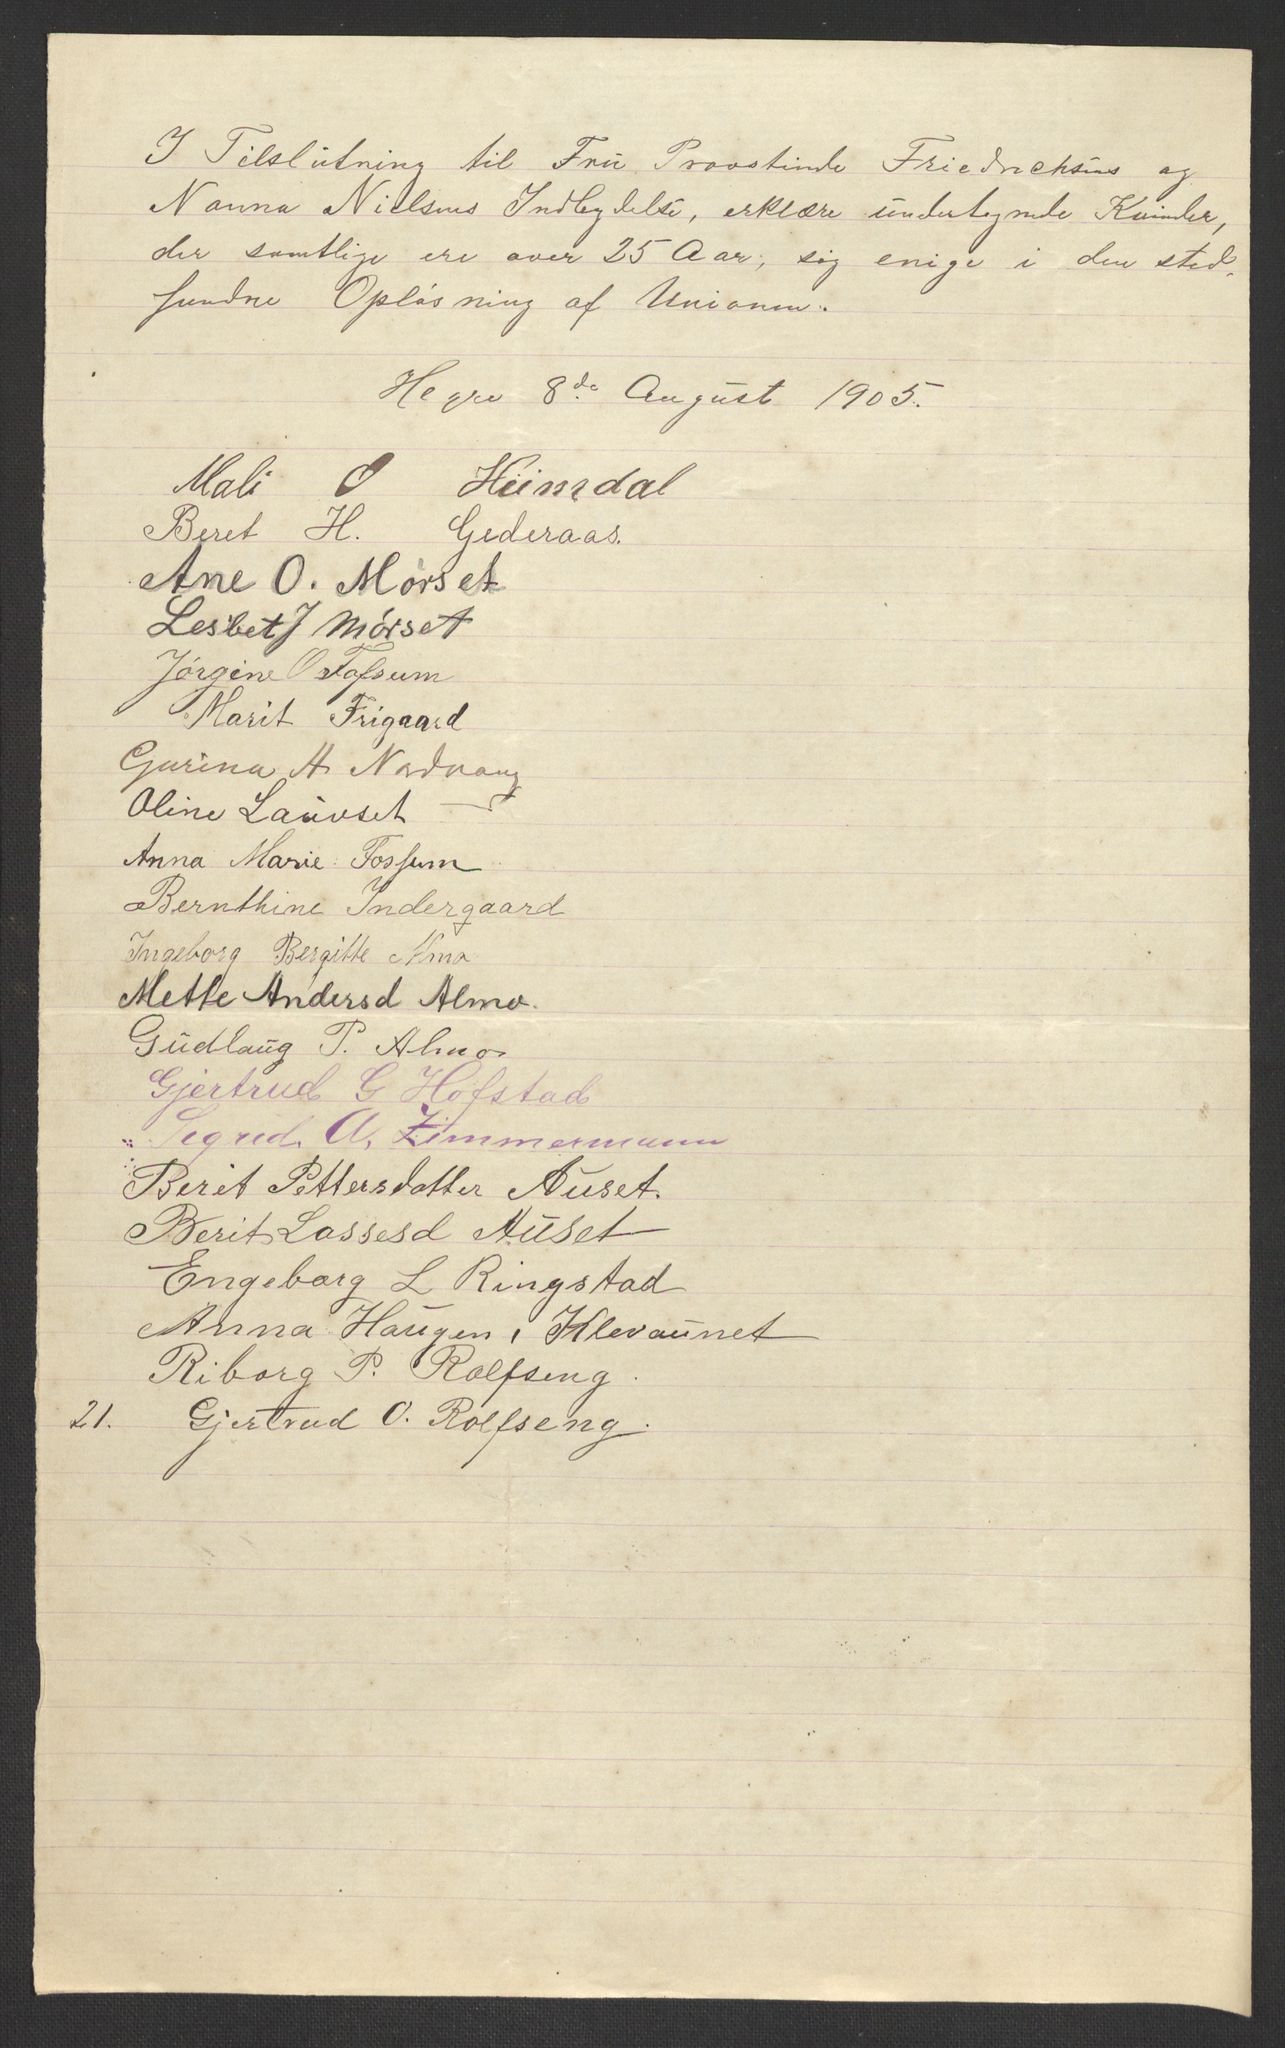 I Tilslutning til Fru Provstinde Friedrichsens og
Nanna Nielsens Indbydelse, erklære undertegnede Kvinder,
der samtlige ere over 25 Aar, sig enige i den sted-
fundne Opløsning af Unionen.
Hegre 8de August 1905.
Mali O Heimdal
Beret H. Gederaas.
Ane O. Mørset
Lesbet J Mørset
Jørgine O Fossum
Marit Frigaard
Gurina A Nordvang
Oline Lauvset
Anna Marie Fossum
Bernthine Indergaard
Ingeborg Bergitte Almo
Mette Andersd Almo.
Gudlaug P. Almo
Gjertrud G Hofstad
Segred. A. Zimmermann
Berit Pettersdatter Auset.
Berit Lassesd Auset
Engeborg L Ringstad
Anna Haugen, Klevaunet
Riborg P. Rolfseng.
21. Gjertrud O. Rolfseng.